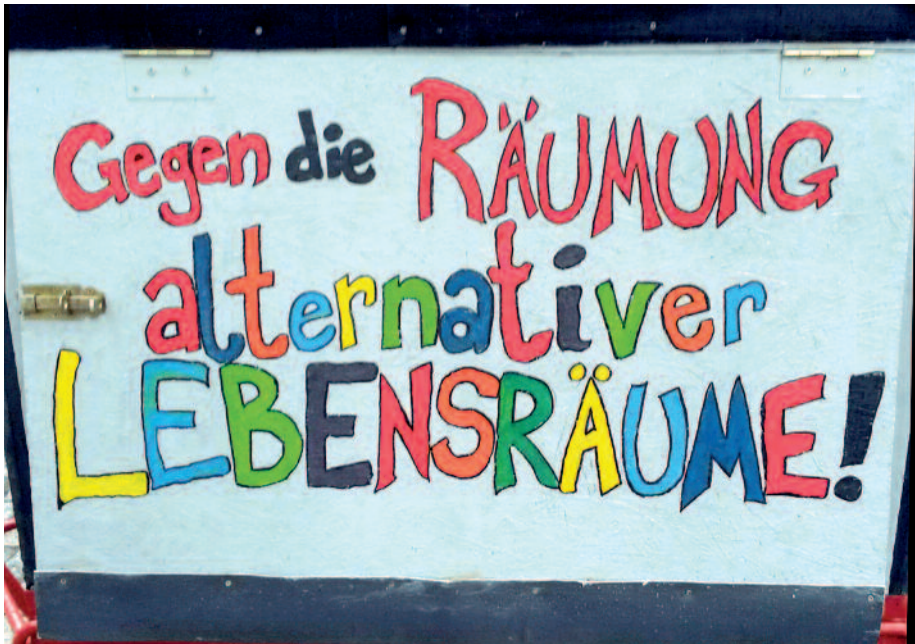 Gegen die RÄUMUNG
alternativer
LEBENSRÄUME!